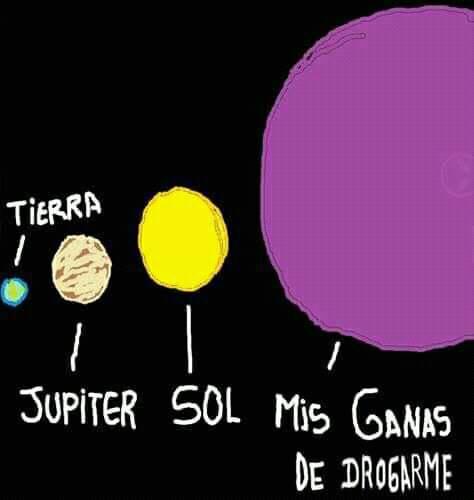 TIERRA
JUPITER SOL MIS GANAS
DE DROGARME